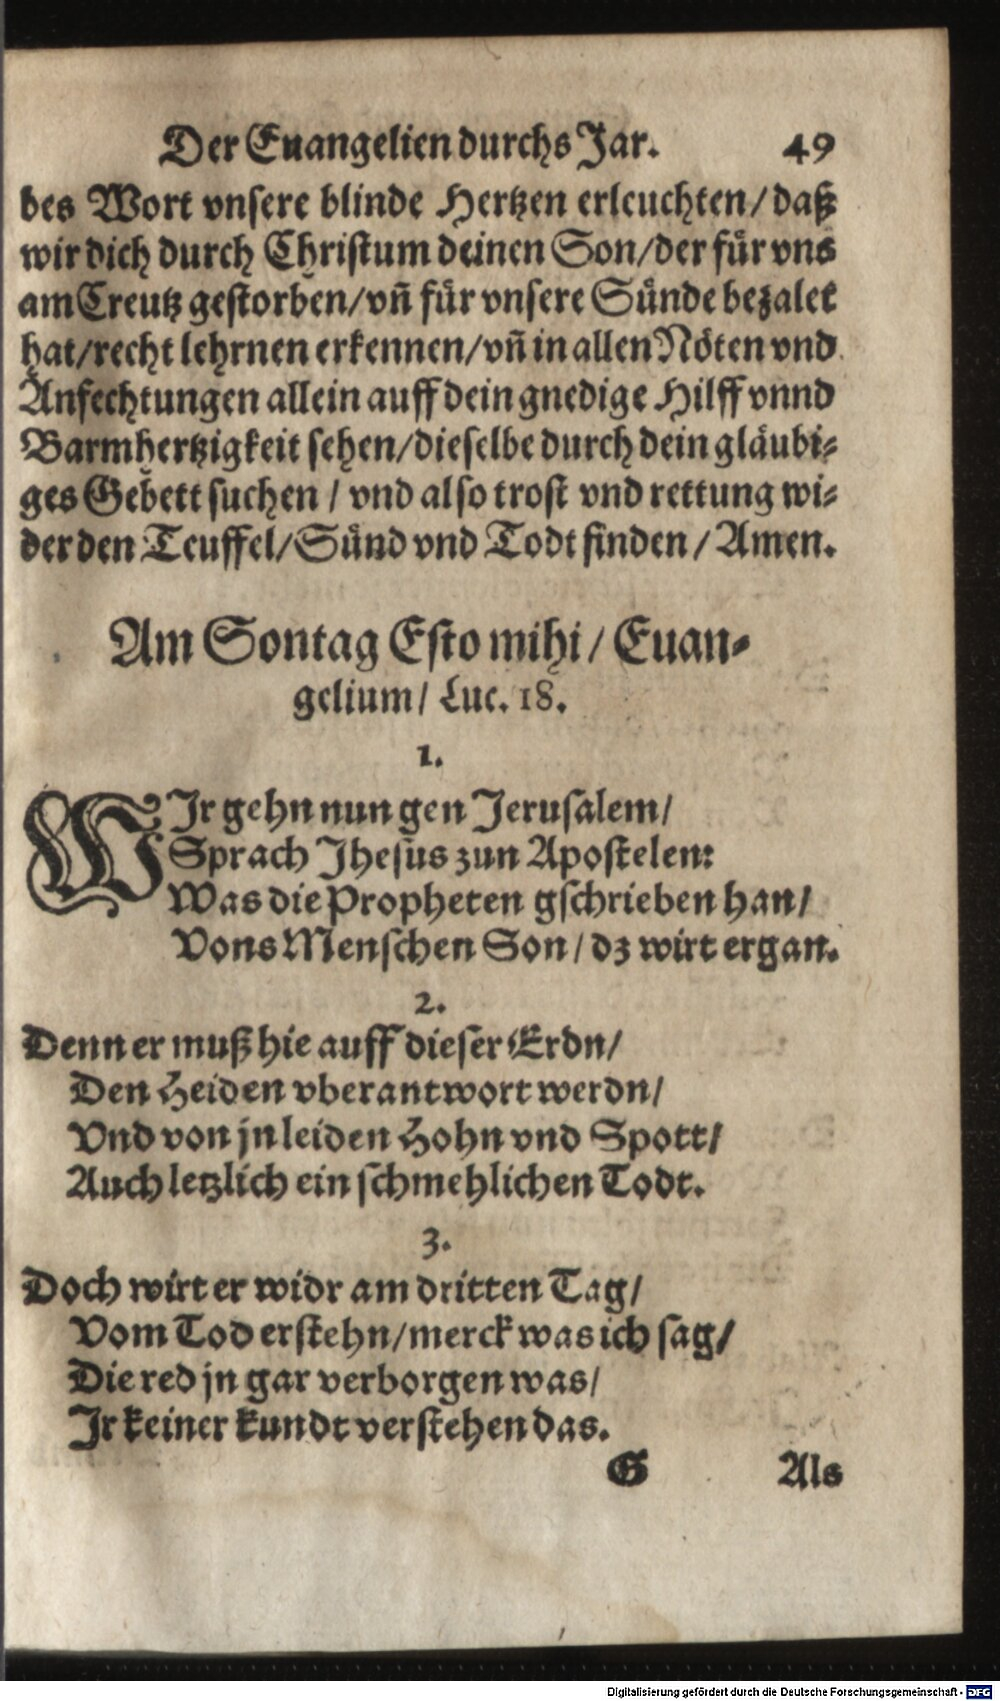 Der Euangelien durchs Jar. 49
des Wort vnsere blinde Hertzen erleuchten/ daß
wir dich durch Christum deinen Son/ der für vns
am Creutz gestorben/ vn̄ für vnsere Sünde bezalet
hat/ recht lehrnen erkennen/ vn̄ in allen Nöten vnd
Anfechtungen allein auff dein gnedige Hilff vnnd
Barmhertzigkeit sehen/ dieselbe durch dein gläubi-
ges Gebett suchen / vnd also trost vnd rettung wi-
der den Teuffel/ Sünd vnd Todt finden/ Amen.
Am Sontag Esto mihi/ Euan-
gelium/ Luc. 18.
1.
WJr gehn nun gen Jerusalem/
Sprach Jhesus zun Apostelen:
Was die Propheten gschrieben han/
Vons Menschen Son/ dz wirt ergan.
2.
Denn er muß hie auff dieser Erdn/
Den Heiden vberantwort werdn/
Vnd von jn leiden Hohn vnd Spott/
Auch letzlich ein schmehlichen Todt.
3.
Doch wirt er widr am dritten Tag/
Vom Tod erstehn/ merck was ich sag/
Die red jn gar verborgen was/
Jr keiner kundt verstehen das.
G Als
Digitalisierung gefördert durch die Deutsche Forschungsgemeinschaft - DFG